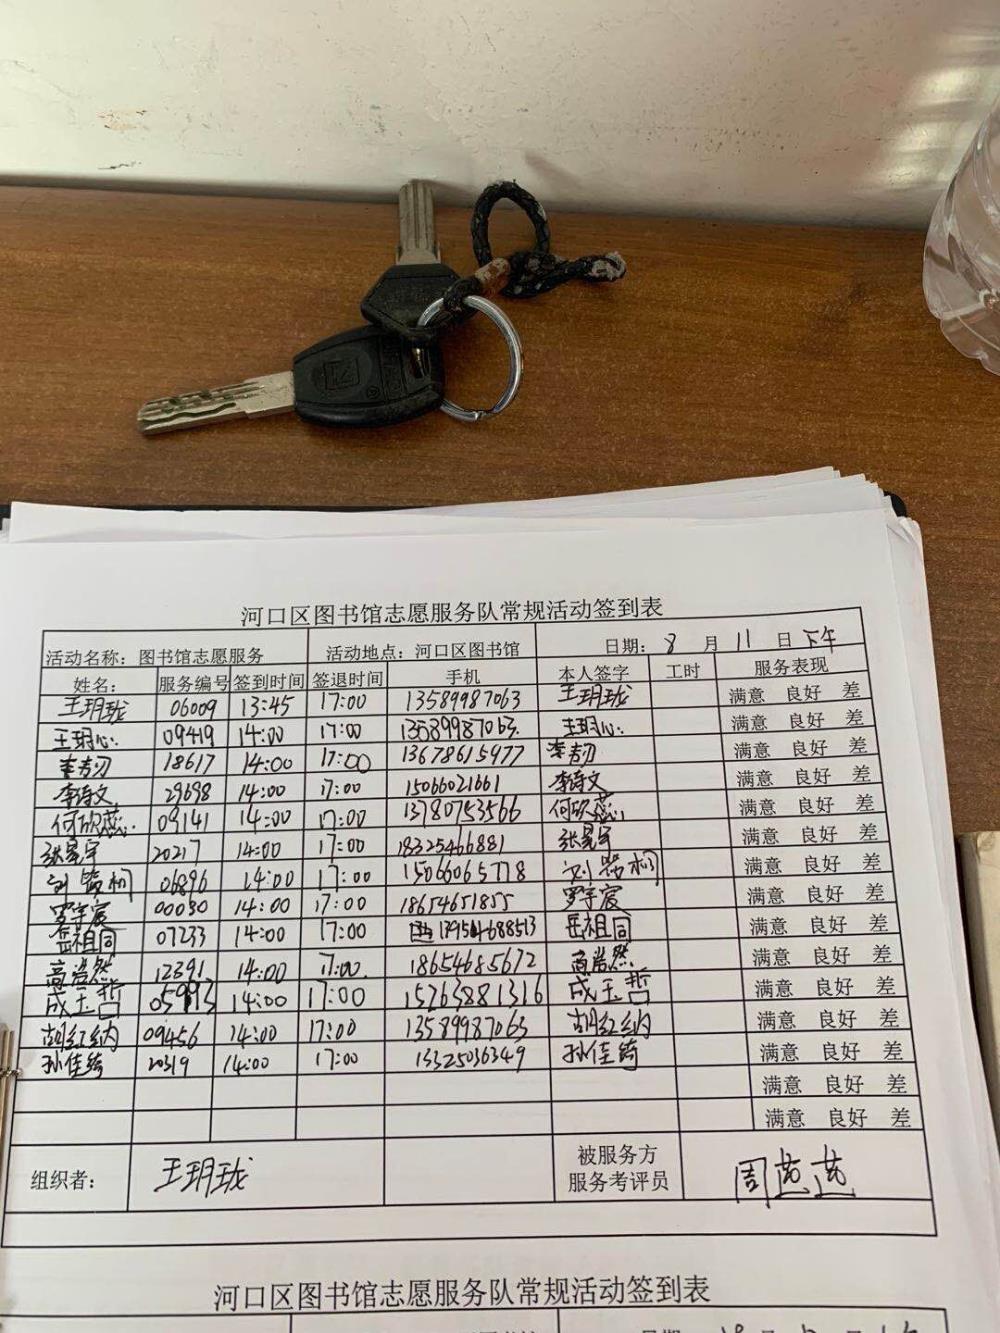 河口区图书馆志愿服务队常规活动签到表
活动名称：图书馆志愿服务 活动地点：河口区图书馆 日期：8 月 11 日 下午
姓名： 服务编号 签到时间 签退时间 手机 本人签字 工时 服务表现
王玥珑 06009 13:45 17:00 13589987063 王玥珑 满意 良好 差
王玥心 09419 14:00 17:00 13589987063 王玥心 满意 良好 差
18617 14:00 17:00 13678615977 满意 良好 差
李诗文 29698 14:00 17:00 15066021661 李诗文 满意 良好 差
何欣蕊 09141 14:00 17:00 13780753566 何欣蕊 满意 良好 差
张昊宇 20217 14:00 17:00 18325466881 张昊宇 满意 良好 差
06896 14:00 17:00 15066065778 满意 良好 差
罗宇宸 00030 14:00 17:00 18654651855 罗宇宸 满意 良好 差
岳祖同 07233 14:00 17:00 岳祖同 满意 良好 差
高浩然 12391 14:00 17:00 18654685672 高浩然 满意 良好 差
成玉哲 14:00 17:00 15263881316 成玉哲 满意 良好 差
胡红纳 09456 14:00 17:00 13589987063 胡红纳 满意 良好 差
孙佳绮 20319 14:00 17:00 13325036349 孙佳绮 满意 良好 差
满意 良好 差
满意 良好 差
组织者： 王玥珑 被服务方
服务考评员 周燕燕
河口区图书馆志愿服务队常规活动签到表